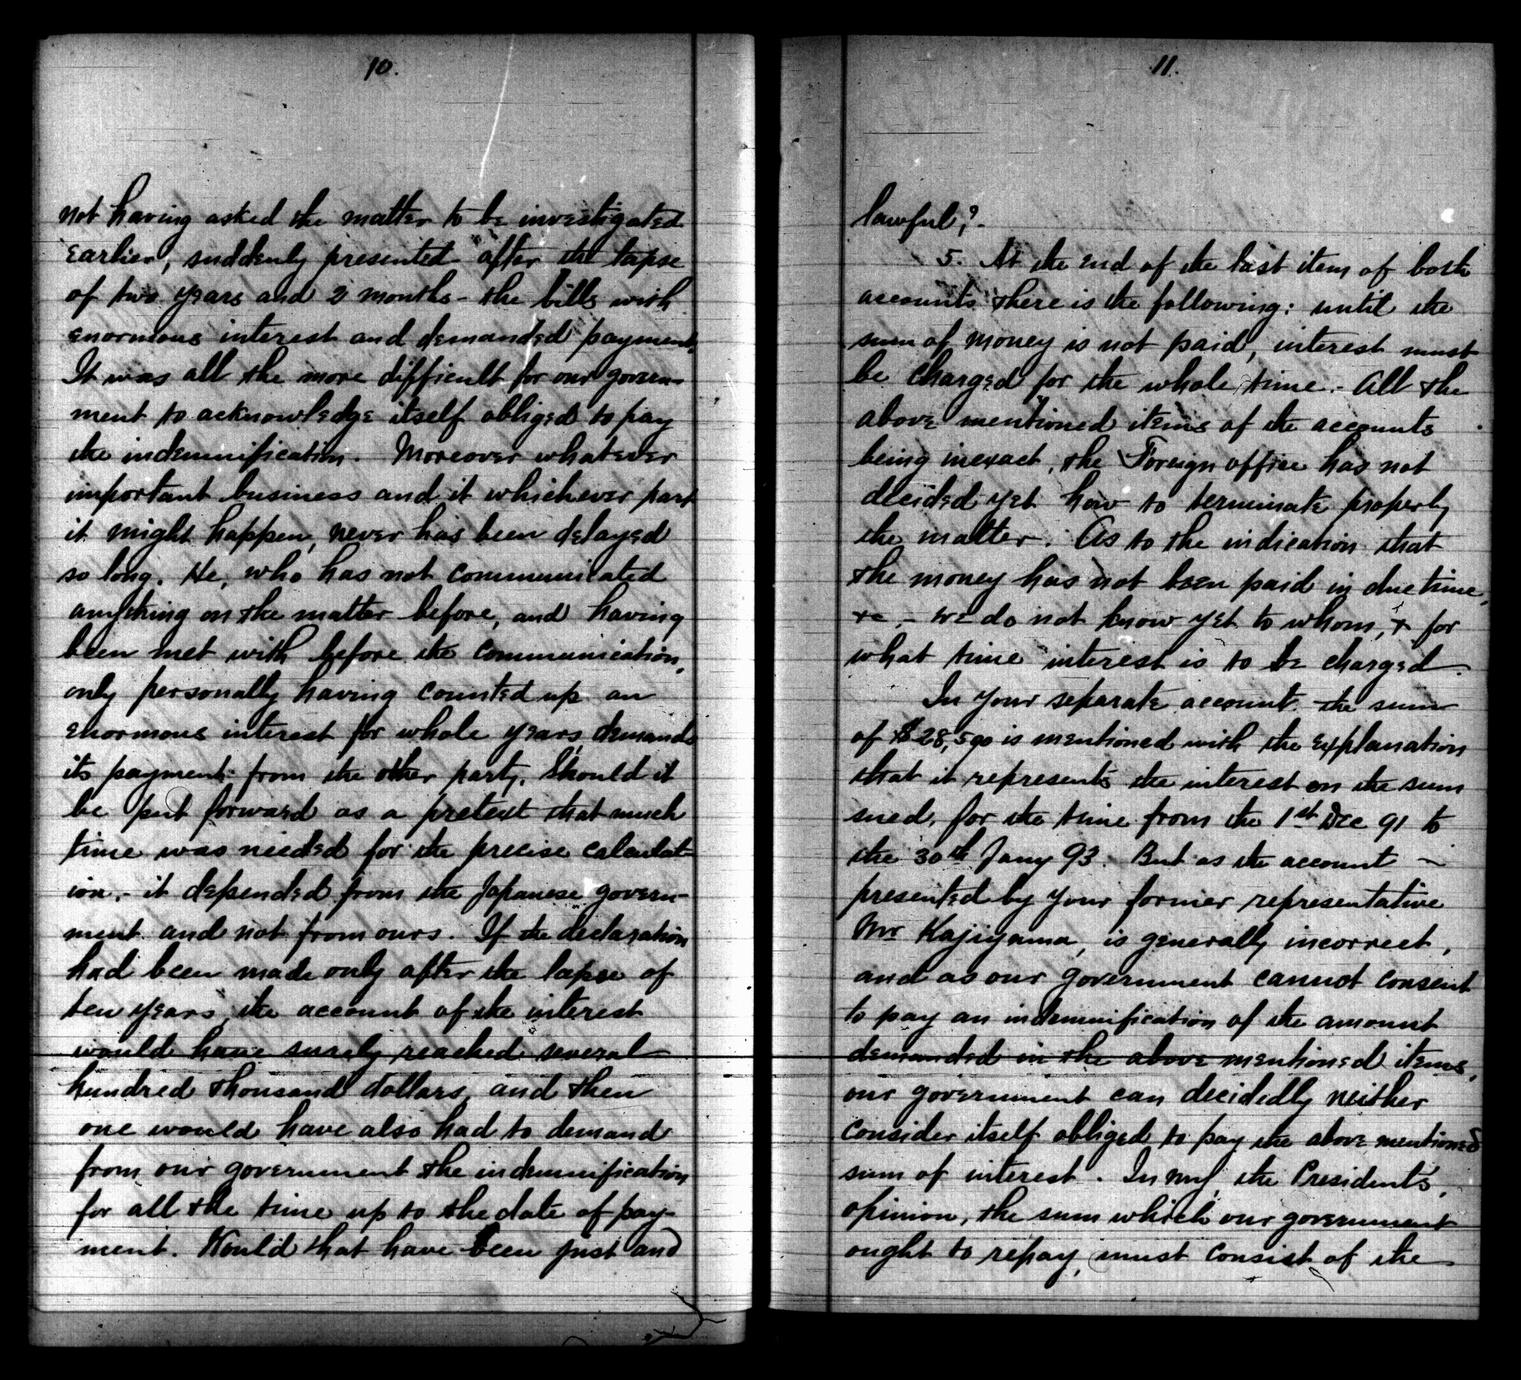 10.
not having asked the matter to be investigated
earlier, suddenly presented after the lapse
of two years and 2 months - the bills with
enormous interest and demanded payment.
It was all the more difficult for our govern-
ment to acknowledge itself obliged to pay
the indemnification. Moreover whatever
important business and it whichever part
it might happen, never has been delayed
so long. He, who has not communicated
anything on the matter before, and having
been met with before the communication,
only personally having counted up an
enormous interest for whole years, demands
its payment from the other party. Should it
be put forward as a pretext that much
time was needed for the precise calculat-
ion, - it depended from the Japanese govern-
ment and not from ours. If the declaration
had been made only after the lapse of
ten years, the account of the interest
would have surely reached several
hundred thousand dollars, and then
one would have also had to demand
from our government the indemnification
for all the time up to the date of pay-
ment. Would that have been just and
11.
lawful?.
5. At the end of the last item of both
accounts there is the following: until the
sum of money is not paid, interest must
be charged for the whole time. All the
above mentioned items of the accounts
being inexact, the Foreign office has not
decided yet how to terminate properly
the matter. As to the indication that
the money has not been paid in due time,
&c, - we do not know yet to whom, & for
what time interest is to be charged.
In your separate account the sum
of $28,590 is mentioned with the explanation
that it represents the interest on the sum
sued, for the time from the 1st Dec 91 to
the 30th Jany 93. But as the account
presented by your former representative
Mr Kajiyama, is generally incorrect,
and as our government cannot consent
to pay an indemnification of the amount
demanded in the above mentioned items,
our government can decidedly neither
consider itself obliged to pay the above mentioned
sum of interest. In my, the Presidents,
opinion, the sum which our government
ought to repay, must consist of the